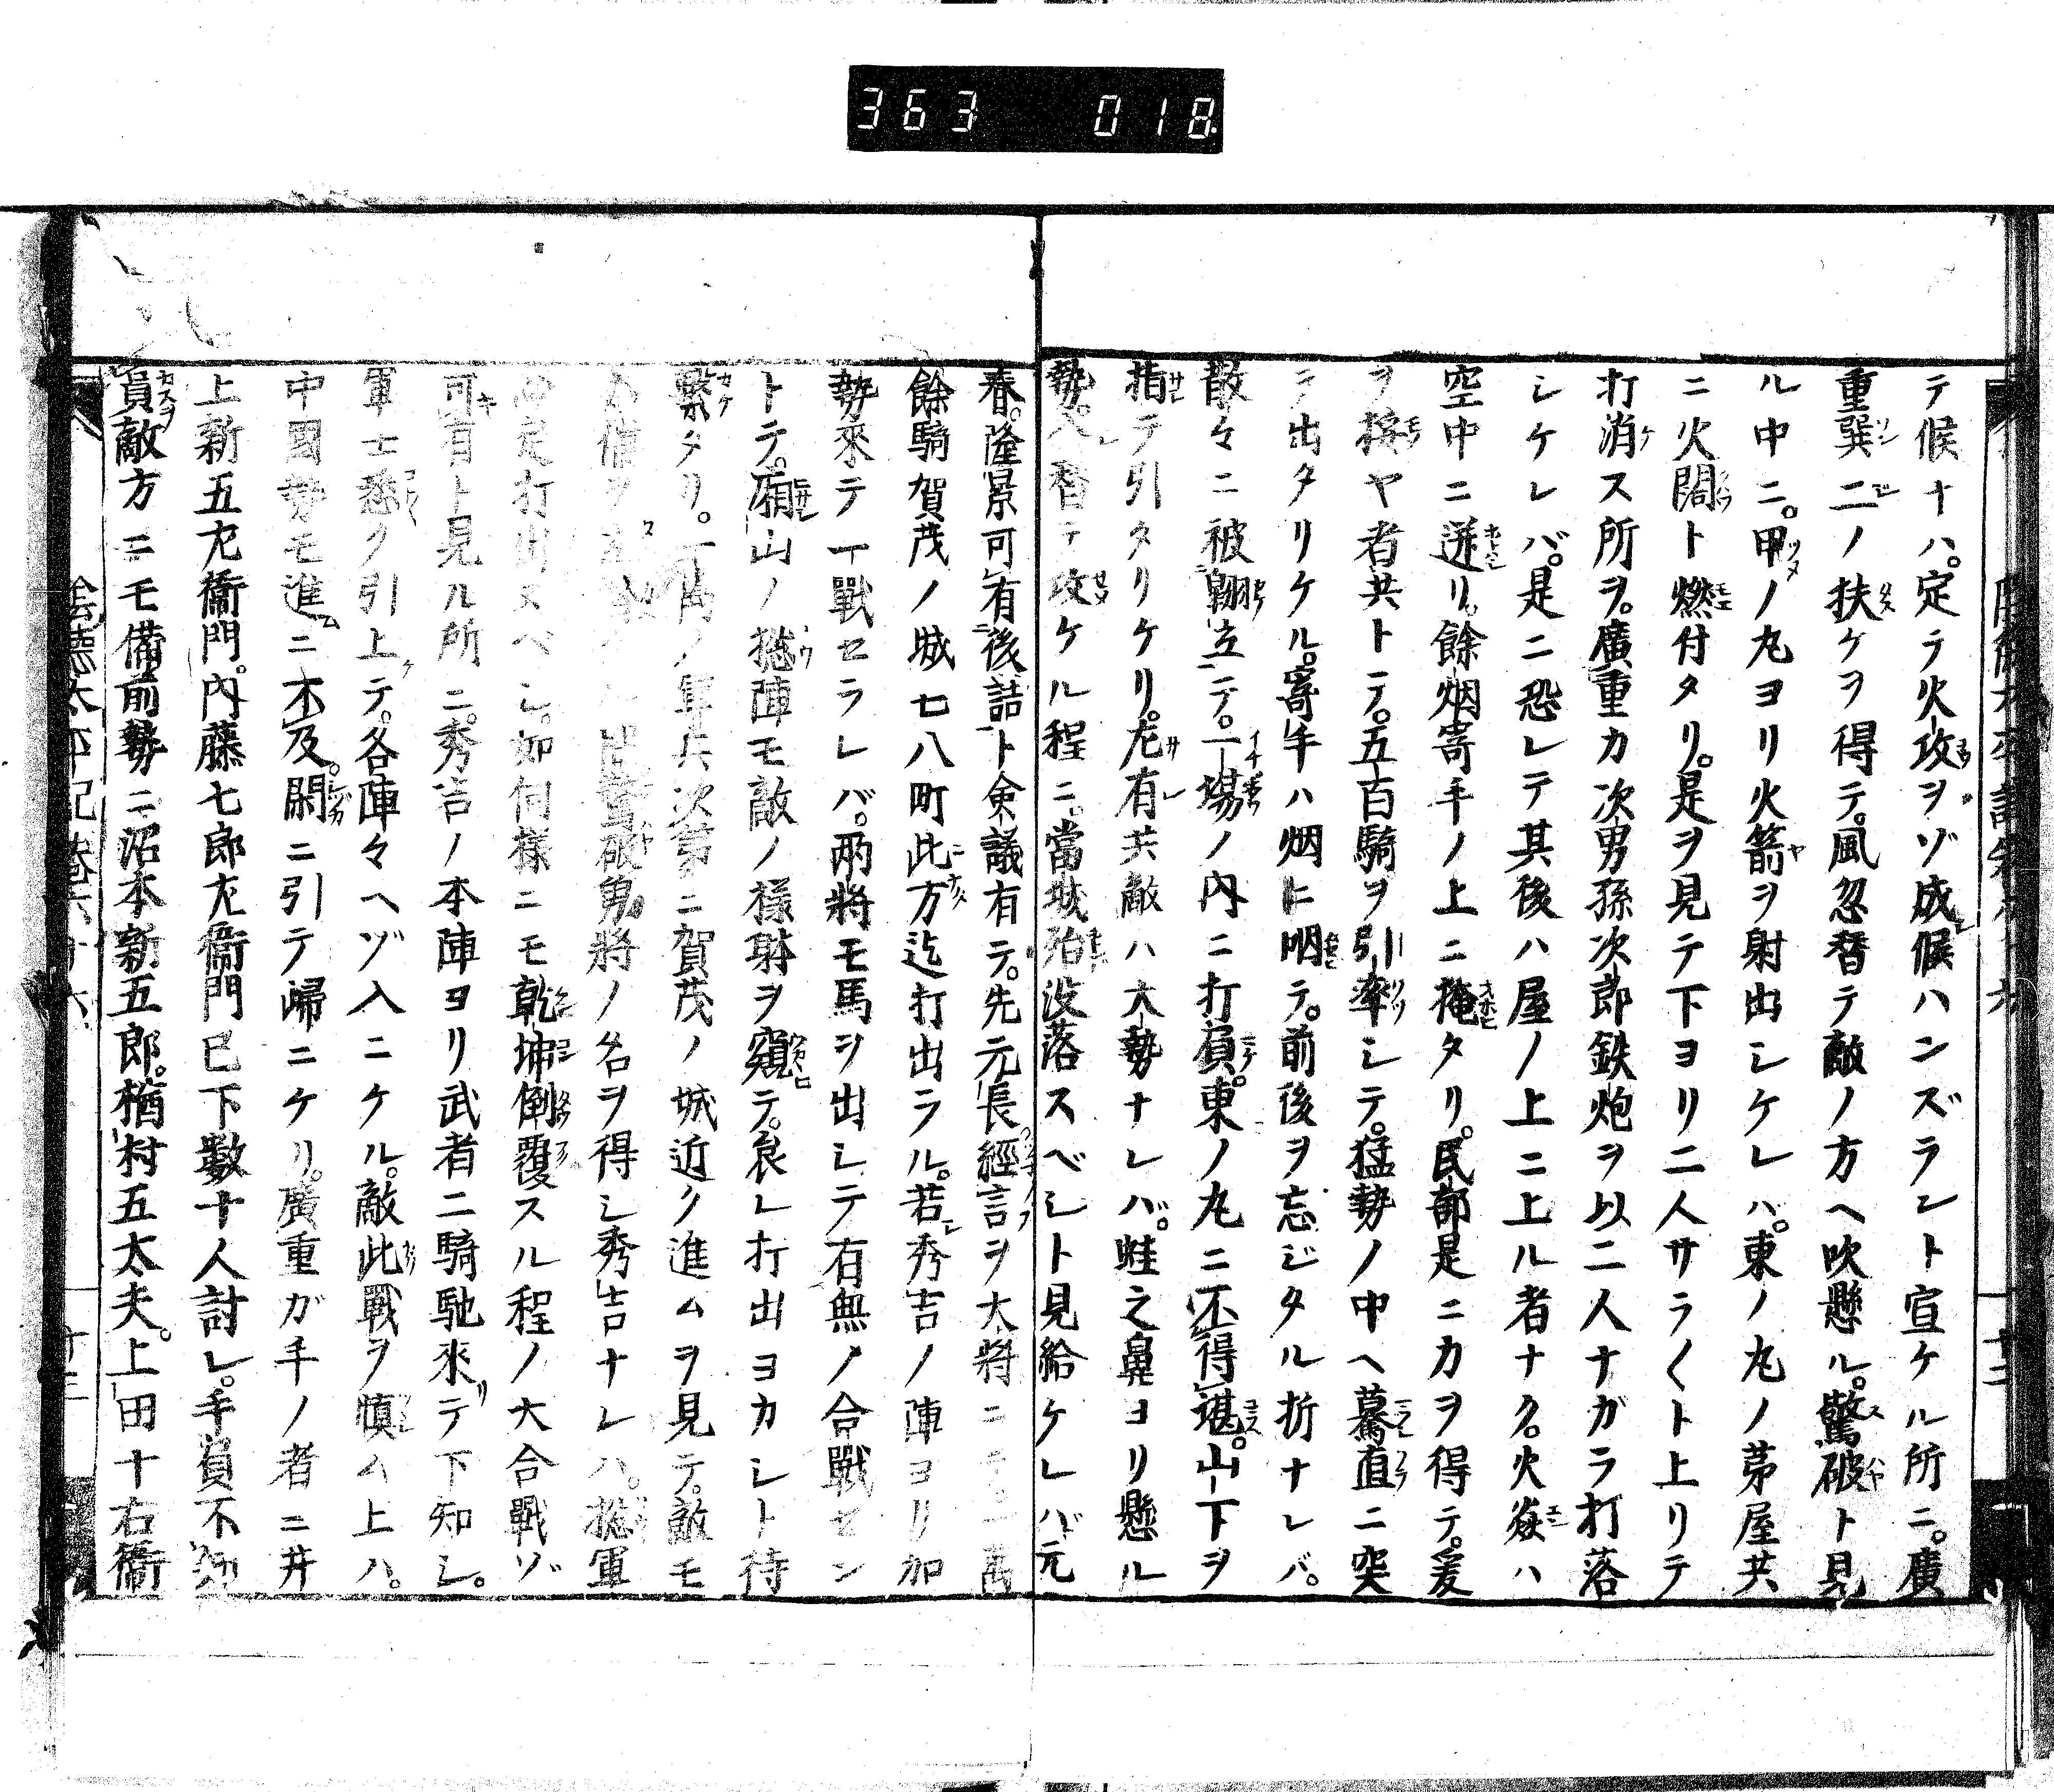 363 018
テ候ナハ。定テ火攻ヲゾ成候ハンズラント宣ケル所ニ。廣
重巽二ノ扶ケヲ得テ。風忽替テ敵ノ方ヘ吹懸ル。驚破ト見
ル中ニ。甲ノ丸ヨリ火箭ヲ射出シケレハ。東ノ丸ノ茅屋共
ニ火閤ト燃付タリ。是ヲ見テ下ヨリ二人サラ〱ト上リテ
打消ス所ヲ。廣重カ次男孫次郎鉄炮ヲ以二人ナガラ打落
シケレバ。是ニ恐レテ其後ハ屋ノ上ニ上ル者ナク。火焱ハ
空中ニ迸リ。餘烟寄手ノ上ニ掩タリ。民部是ニカヲ得テ。爰
ヲ揉ヤ者共トテ。五百騎ヲ引率シテ。猛勢ノ中ヘ驀直ニ突
テ出タリケル。寄手ハ烟ニ咽テ。前後ヲ忘ジタル折ナレバ。
散々ニ被翺立テ。一場ノ内ニ打負。東ノ丸ニ不得堪。山下ヲ
指テ引タリケリ。尤有共敵ハ大勢ナレバ。蛙之鼻ヨリ懸ル
勢。入替テ攻ケル程ニ。當城殆没落スベシト見給ケレハ゛元
春。隆景可有後詰ト僉議有テ。先元長經言ヲ大將ニテ一萬
餘騎賀茂ノ城七八町此方迄打出ラル。若秀吉ノ陣ヨリ加
勢來テ一戰セラレバ。兩將モ馬ヲ出シテ有無ノ合戰セン
トテ。廂山ノ捴陣モ敵ノ様躰ヲ窺テ。哀レ打出ヨカシト待
繋タリ。一萬ノ軍兵次第ニ賀茂ノ城近ク進ムヲ見テ。敵モ
備ヲ 驚破鬼將ノ名ヲ得シ秀吉ナレハ。捴軍
定打出ヌベシ。如何様ニモ乾坤倒覆スル程ノ大合戰ゾ
可有ト見ル所ニ。秀吉ノ本陣ヨリ武者二騎馳來テ下知シ。
軍士悉ク引上テ。各陣々ヘゾ入ニケル。敵此戰ヲ慎ム上ハ。
中國勢モ進ニ不及。閑ニ引テ歸ニケリ。廣重ガ手ノ者ニ井
上新五左衞門。内藤七郎左衞門已下數十人討レ。手負不知
員敵方ニモ備前勢ニ沼本新五郎。楢村五太夫。上田十右衞
陰德太平記卷六十六
十三